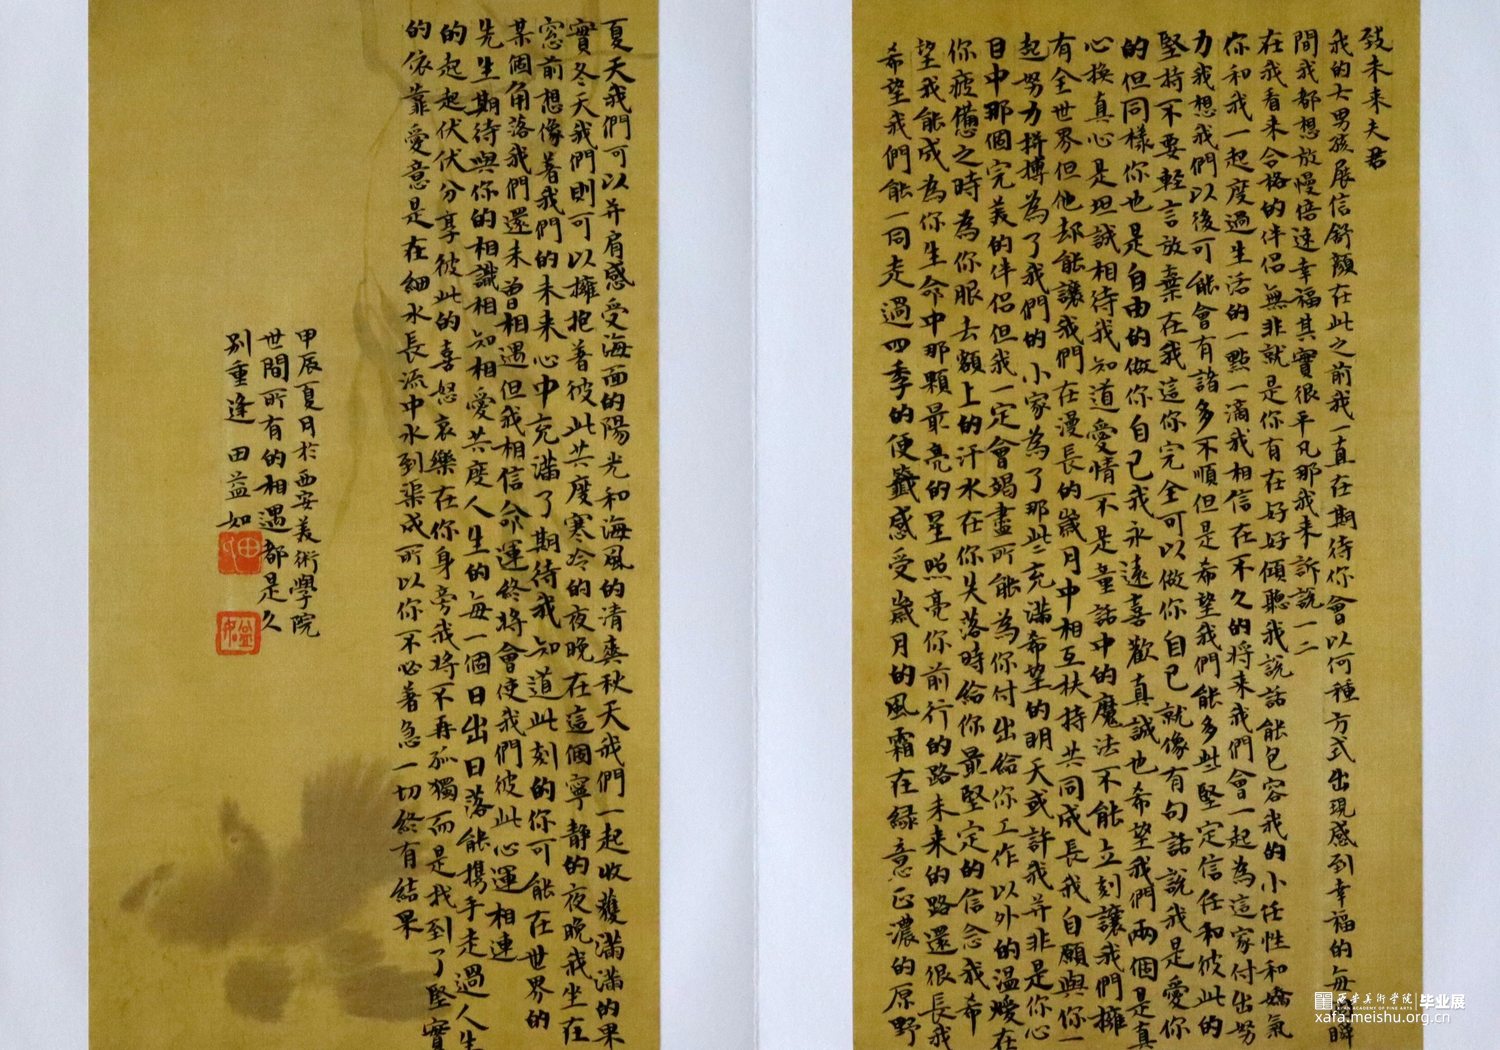 致未来夫君
我的大男孩展信舒顏在此之前我一直在期待你會以何種方式出現感到幸福的每瞬
間我都想放慢倍速幸福其實很平凡那我来訴說一二
在我看来合格的伴侣無非就是你有在好好傾聽我說話能包容我的小任性和嬌氣
你和我一起度過生活的一點一滴我相信在不久的將来我們會一起為這家付出努
力我想我們以後可能會有諸多不順但是希望我們能多些堅定信任和彼此的
堅持不要輕言放棄在我這你完全可以做你自己就像有句話說我是愛你
的但同樣你也是自由的做你自己我永遠喜歡真誠也希望我們兩個是真
心換真心是坦誠相待我知道愛情不是童話中的魔法不能立刻讓我們擁
有全世界但他却能讓我們在漫長的歲月中相互扶持共同成長我自願與你一
起努力拼搏為了我們的小家為了那些充滿希望的明天或許我并非是你心
目中那個完美的伴侣但我一定會竭盡所能為你付出給你工作以外的温暖在
你疲憊之時為你服去額上的汗水在你失落時給你最堅定的信念我希
望我能成為你生命中那顆最亮的星照亮你前行的路未来的路還很長我
希望我們能一同走過四季的便籤感受歲月的風霜在緑意正濃的原野
夏天我們可以并肩感受海面的陽光和海風的清爽秋天我們一起收獲滿滿的果
實冬天我們則可以擁抱着彼此共度寒冷的夜晚在這個寧静的夜晚我坐在
窓前想像著我們的未来心中充滿了期待我知道此刻的你可能在世界的
某個角落我們還未曾相遇但我相信命運終將會使我們彼此心運相連
先生期待與你的相識相知相愛共度人生的每一個日出日落能携手走過人生
的起起伏伏分享彼此的喜怒哀樂在你身旁我將不再孤獨而是找到了堅實
的依靠愛意是在細水長流中水到渠成所以你不必著急一切終有結果
甲辰夏月於西安美術學院
世間所有的相遇都是久
别重逢 田益如
西安美術学院
XI'AN ACADEMY OF FINE ARTS
毕业展
xafa.meishu.org.cn